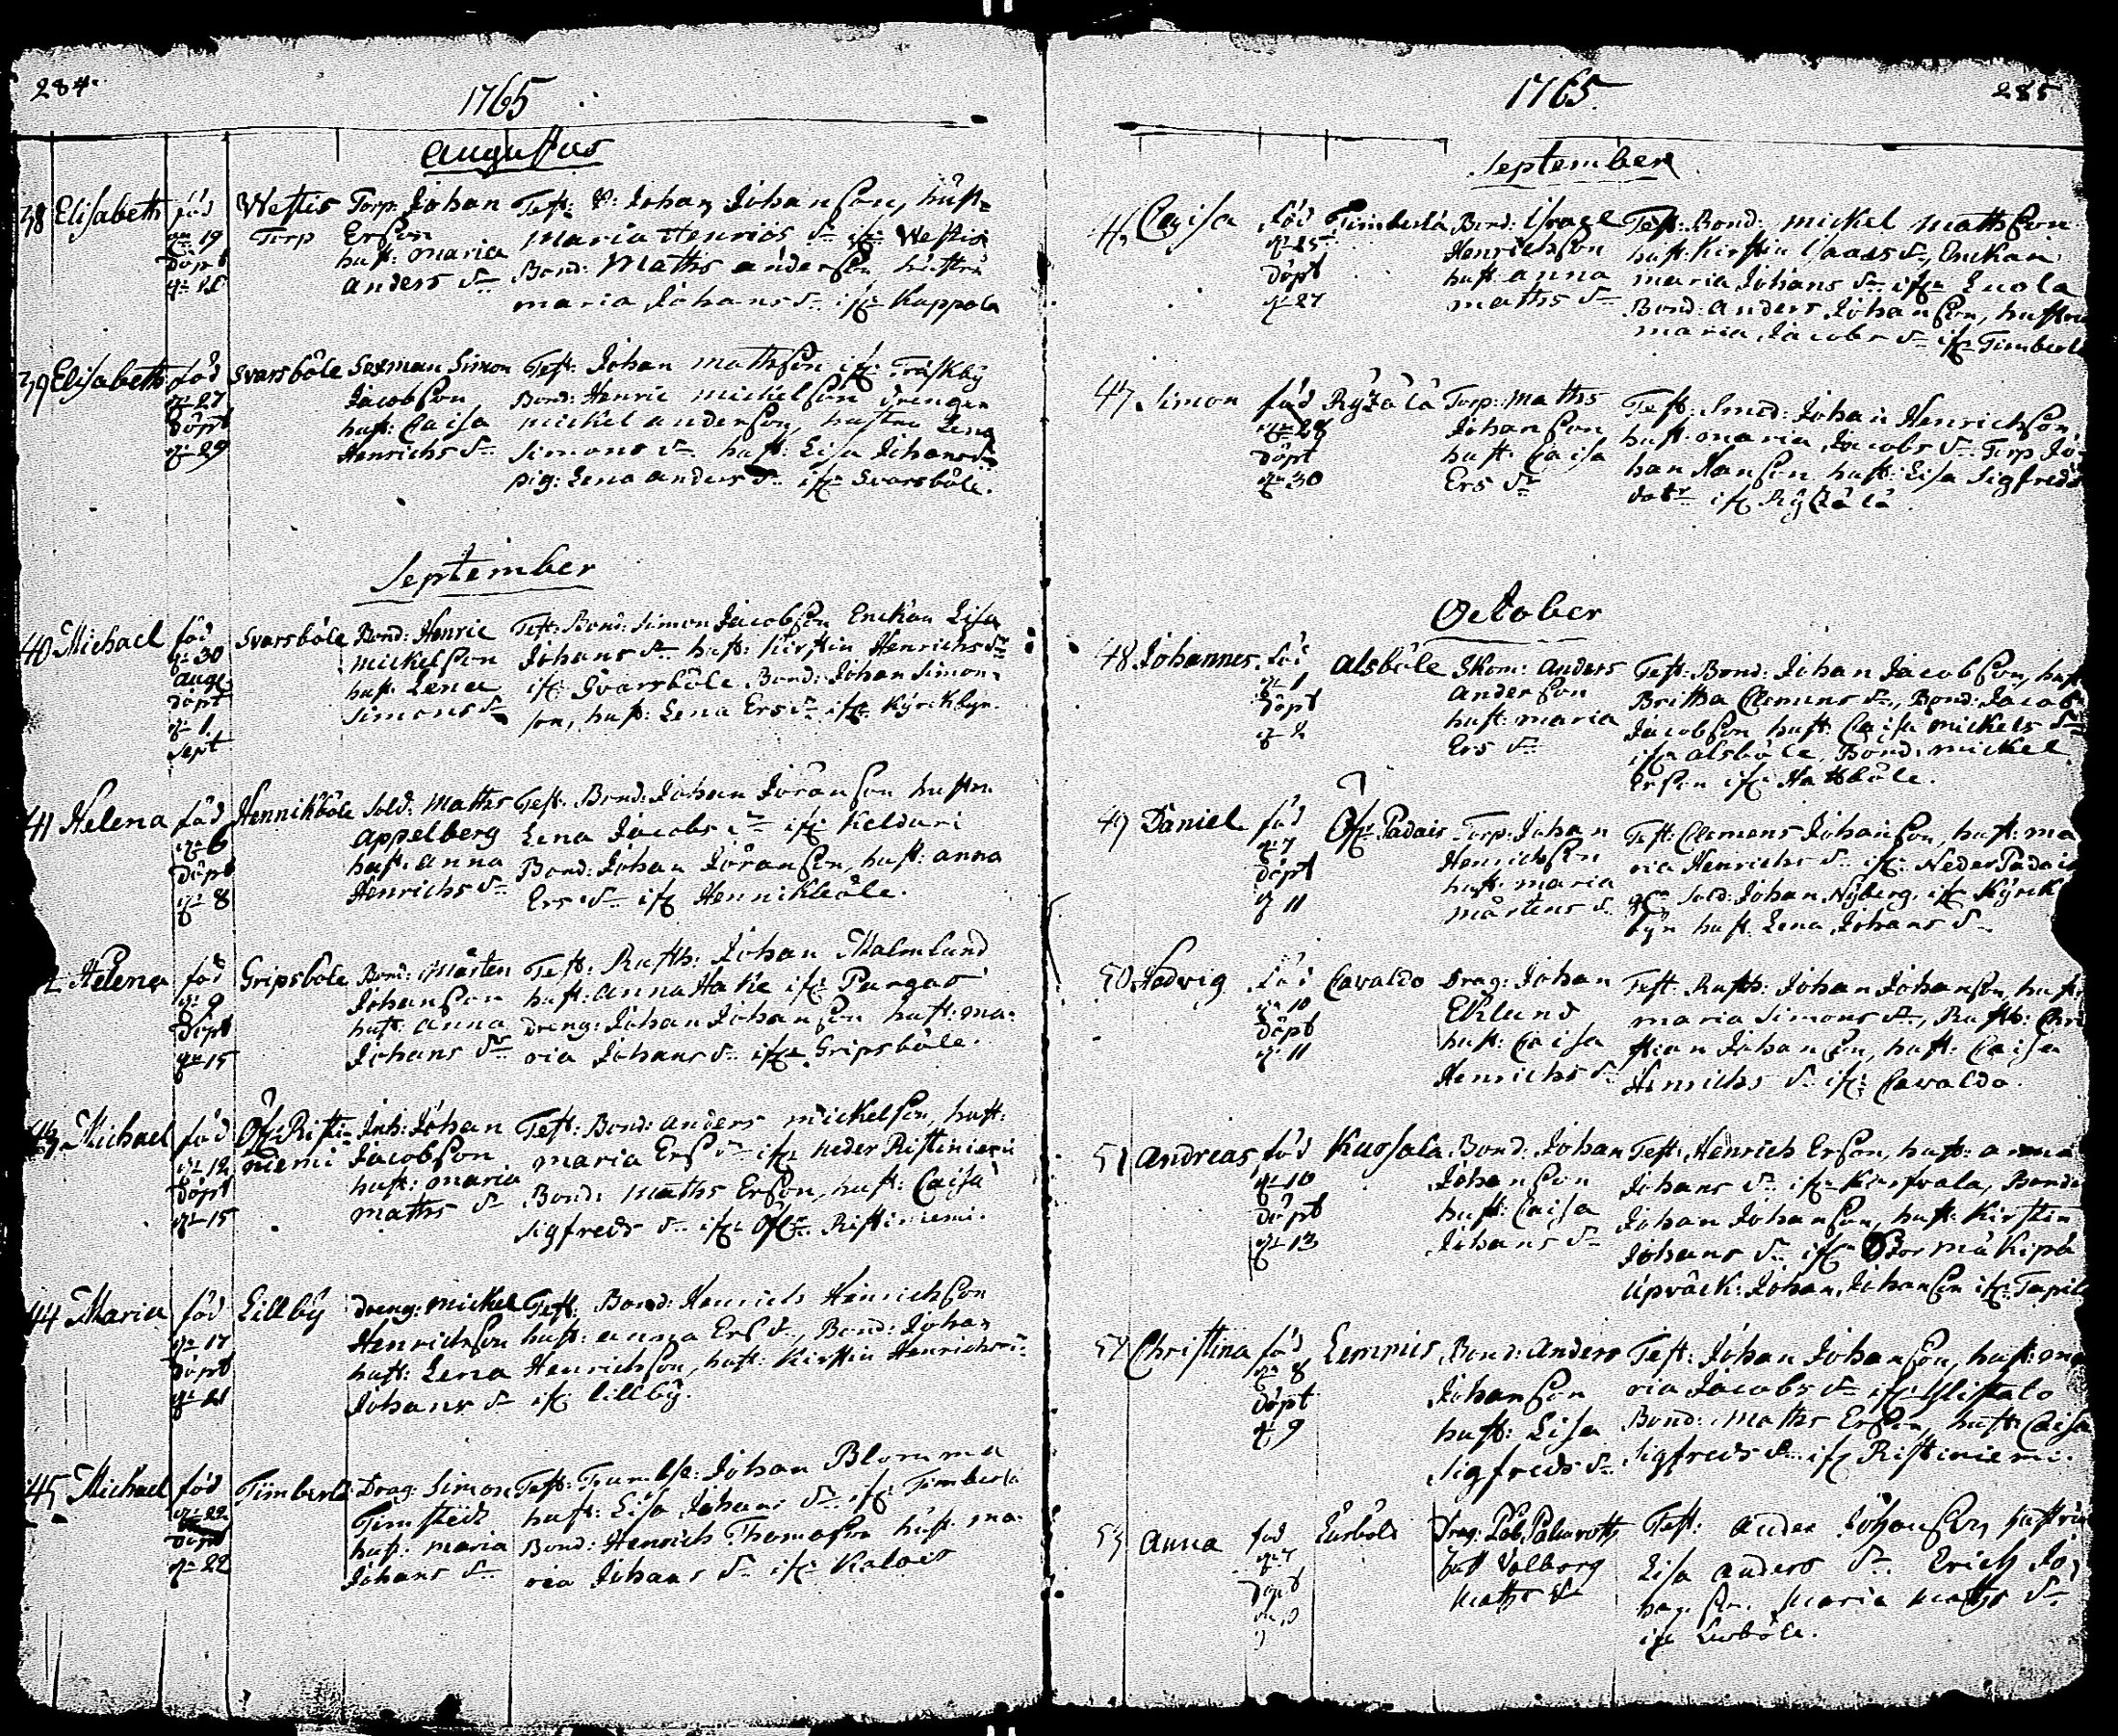 284.
1765
Augustus
38 Elisabeth föd Westis Torp: Johan Test: B: Johan Johansson, hust:
19 Torp Ersson Maria Henrics dr ifr: Westis
döpt hust: Maria Bond: Maths Andersson hustru
Anders dr Maria Johans dr ifr: Kappola
39 Elisabeth föd Svarsböle Sexman Simon Test: Johan Mathsson ifr: Träskby
27 Jacobsson Bond: Henric Mickelsson Drengen
döpt hust: Caisa Mickel Andersson, hustru Lena
29 Henrichs dr Simons dr hust: Lisa Johans dr
pig: Lena Anders dr ifr Svarsböle.
September
40 Michael föd Svarsböle Bond: Henric Test: Bond: Simon Jacobsson Enckan Lisa
30 Mickelsson Johans dr hust: Kirstin Henrichs dr
Aug: hust: Lena ifr: Svarsböle Bond: Johan Simon-
döpt Simons dr son, hust: Lena Ers dr ifr Kyrckbyn.
1
Sept
41 Helena föd Hennikböle Sold: Maths Test: Bond: Johan Joransson hustru
6 Appelberg Lena Jacobs dr ifr Kelduri
döpt hust: Anna Bond: Johan Joransson, hust: Anna
8 Henrichs dr Ers dr ifr Hennikböle.
Helena föd Gripsböle Bond: Mårten Test: Rusth: Johan Malmlund
9 Johansson hust: Anna Hake ifr Pargas
döpt hust: Anna Dreng: Johan Johansson hust: Ma-
15 Johans dr ria Johans dr ifr Gripsböle.
43 Michael föd Öfr Risti- Inh: Johan Test: Bond: Anders Mickelsson, hust:
12 niemi Jacobsson Maria Ers dr ifr Neder Ristiniemi
döpt hust: Maria Bond: Maths Ersson, hust: Caisa
15 Maths dr Sigfreds dr ifr Öfr Ristiniemi.
44 Maria föd Lillby Dreng: Mickel Test: Bond: Henrich Henrichsson
17 Henrichsson hust: Anna Ers dr, Bond: Johan
döpt hust: Lena Henrichsson, hust: Kirstin Henrichs
21 Johans dr ifr: Lillby.
45 Michael föd Timberla Drag: Simon Test: Trumbsl: Johan Blomma
22 Timstedt hust: Lisa Johans dr ifr: Timberla
döpt hust: Maria Bond: Henrich Thomasson hust: Ma-
22 Johans dr ria Johans dr ifr Kalais
1765.
285
September
Caisa föd Timberla Bond: Israel Test: Bond: Mickel Mathsson
25 Henrichsson hust: Kirstin Isaacs dr, Enckan
döpt hust: Anna Maria Johans dr ifr Luola
27 Maths dr Bond: Anders Johansson, hustru
Maria Jacobs dr ifr Timberla
47 Simon föd Torp: Maths Test: Smed: Johan Henrichsson
28 Johansson hust: Maria Jacobs dr Torp Jo-
döpt hust: Caisa han Hansson hust: Lisa Sigfreds
30 Ers dr dotr ifr
October
48 Johannes föd Alsböle Skom: Anders Test: Bond: Johan Jacobsson, hust
1 Andersson Britha Clemens dr, Bond: Jacob
döpt hust: Maria Jacobsson hust: Caisa Mickels dr
2 Ers dr ifr Alsböle, Bond: Mickel
Ersson ifr Hattböle.
49 Daniel föd Öfr: Padais Torp: Johan Test: Clemens Johansson, hust: Ma
7 Henrichsson ria Henrichs dr ifr: Neder Padais
döpt hust: Maria Sold: Johan Nyberg, ifr Kyrck
11 Mårtens dr byn hust: Lena Johans dr
50 Hedvig föd Cavaldo Drag: Johan Test: Rusth: Johan Johansson, hust
10 Eklund Maria Simons dr, Rusth: Chri
döpt hust: Caisa stian Johansson, hust: Caisa
11 Henrichs dr Henrichs dr ifr: Cavaldo.
51 Andreas föd Kursala Bond: Johan Test: Henrich Ersson, hust: Anna
10 Johansson Johans dr ifr Kursvala, Bond
döpt hust: Caisa Johan Johansson, hust: Kirstin
13 Johans dr Johans dr ifr Stormäkipä
Upväck: Johan Johansson ifr:
52 Christina föd Lemmis Bond: Anders Test: Johan Johansson, hust: Ma
8 Johansson ria Jacobs dr ifr: Ylistalo
döpt hust: Lisa Bond: Maths Ersson, hust: Caisa
9 Sigfreds dr Sigfreds dr ifr Ristiniemi.
53 Anna föd Lurböle Drag: Palmroth Test: Anders Johansson hustru
7 hust Valborg Lisa Anders dr. Erich Jo-
döpt Maths dr hansson. Maria Maths dr
ifr Lurböle.